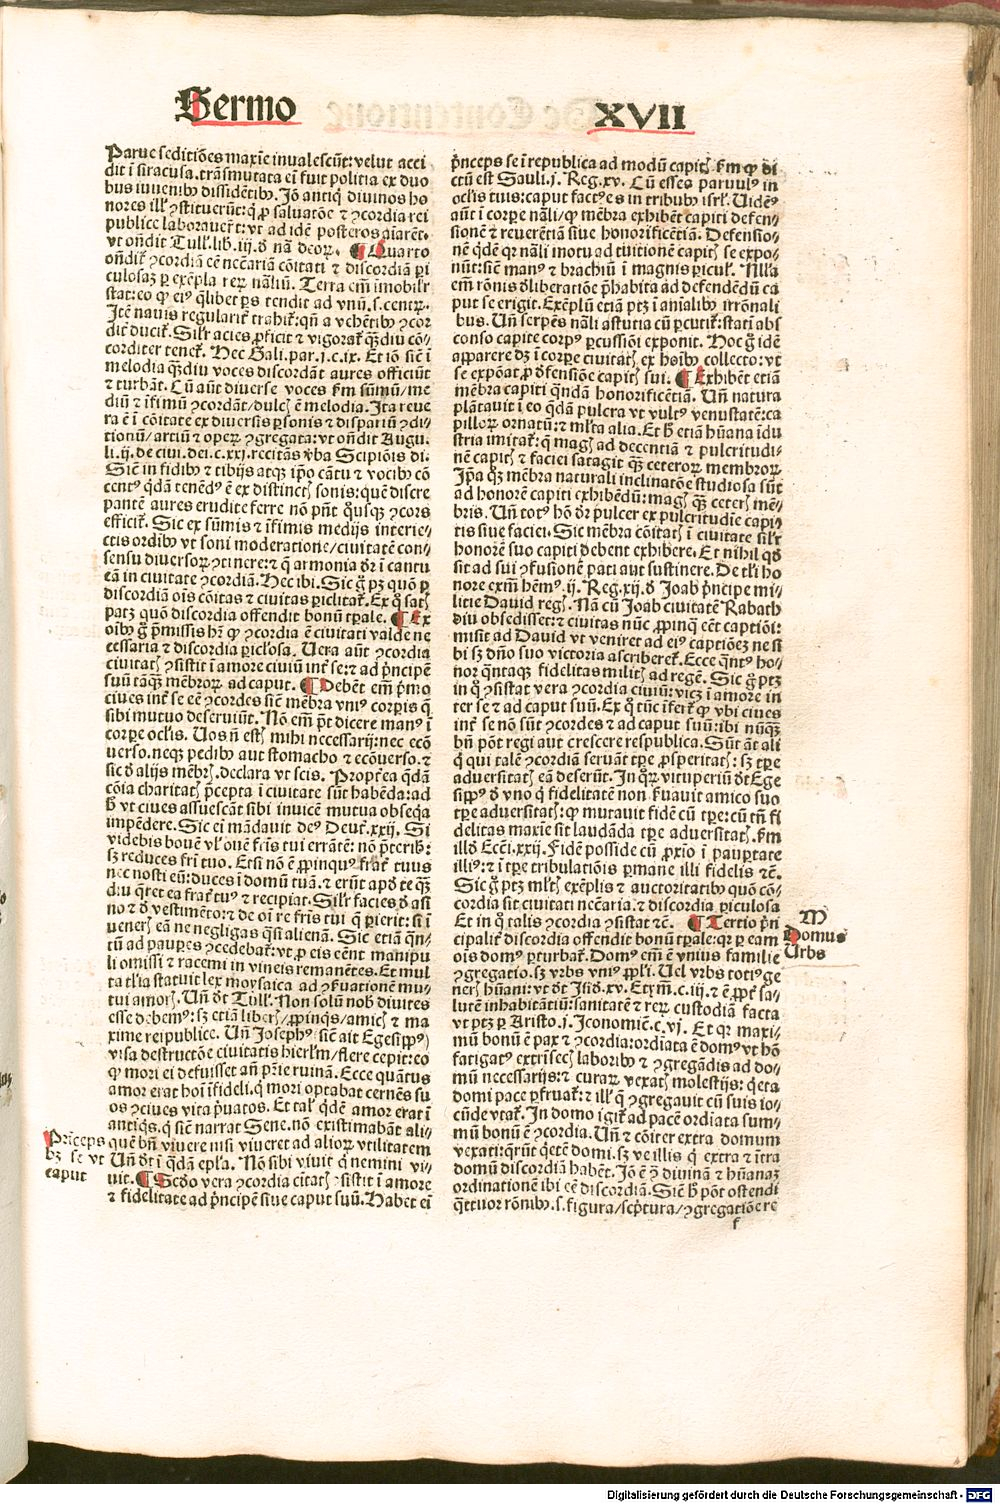 Sermo XVII
Parue seditiões maxīe inualescūt: velut acci
dit ī siracusa. trāsmutata eī fuit politia ex duo
bus iuuenibꝰ dissidētibꝰ. Jō antiqͥ diuinos ho
nores illꝭ ꝯstituerūt: qͥ ꝓ saluatōe ⁊ ꝯcordia rei
publice laborauerūt: vt ad idē posteros aīarēt.
vt oñdit Tull. lib. iij. ď nā deoꝝ. ¶ Quarto
oñdit̉ ꝯcordiā cē necāriā cōitati ⁊ discordiā ꝑi
culosaʒ ꝑ exēpla reꝝ nāliū. Terra em̄ imobilr̄
stat: eo ꝙ eiꝰ q̄libet ꝑs tendit ad vnū .s. centꝝ.
Itē nauis regularit̉ trahit̉: qñ a vehētibꝰ ꝯcor
dit̉ ducit̉. Silr̄ acies ꝓficit ⁊ vigorat̉ qʒdiu cō/
corditer tenet̉. Hec Gali. par. j. c. ix. Et iō sic̄ ī
melodia qʒdiu voces discordāt aures officiūt
⁊ turbāt. Cū aūt diuerse voces ẜm sūmū/ me/
diū ⁊ īfimū ꝯcordāt/ dulcꝭ ē melodia. Ita reue
ra ē ī cōitate ex diuersis ꝑsonis ⁊ dispariū ꝯdi/
tionū/ artiū ⁊ opeꝝ ꝯgregata: vt oñdit Augu.
li. ij. de ciui. dei. c. xxj. recitās v̄ba Scipiōis di.
Sic̄ in fidibꝰ ⁊ tibijs atqʒ ip̄o cātu ⁊ vocibꝰ cō
centꝰ qͥdā tenēdꝰ ē ex distinctꝭ sonis: quē discre
pantē aures erudite ferre nō pn̄t qͥusqʒ ꝯcors
efficit̉. Sic ex sūmis ⁊ īfimis medijs interie/
ctis ordibꝰ vt soni moderatione/ ciuitatē con/
sensu diuersoꝝ ꝯtinere: ⁊ q̄ armonia dr̄ ī cantu
eā in ciuitate ꝯcordiā. Hec ibi. Sic g̊ pʒ quō ꝑ
discordiā oīs cōitas ⁊ ciuitas ꝑiclitat̉. Ex qͦ satꝭ
patʒ quō discordia offendit bonū tp̄ale. ¶ Ex
oībꝰ g̊ p̄missis hr̄ ꝙ ꝯcordia ē ciuitati valde ne
cessaria ⁊ discordia ꝑiclosa. Uera aūt ꝯcordia
ciuitatꝭ ꝯsistit ī amore ciuiū int̉ se: ⁊ ad p̄ncipē
suū tāqʒ mēbroꝝ ad caput. ¶ Debēt em̄ p̄mo
ciues int̉ se eē ꝯcordes sic̄ mēbra vniꝰ corꝑis q̄
sibi mutuo deseruiūt. Nō em̄ pōt dicere manꝰ ī
corꝑe oclis. Uos n̄ estꝭ mihi necessarij: nec ecō
uerso. neqʒ pedibꝰ aut stomacho ⁊ ecōuerso. ⁊
sic ď alijs mēbrꝭ. declara vt scis. Propt̉ea qͥdā
cōia charitatꝭ p̄cepta ī ciuitate sūt habēda: ad
h̊ vt ciues assuescāt sibi inuicē mutua obseqͥa
impēdere. Sic ei mādauit deꝰ Deut̉. xxij. Si
videbis bouē vl̓ ouē fr̄is tui errātē: nō p̄teribꝰ:
sʒ reduces fr̄i tuo. Etsi nō ē ꝓpinquꝰ frat̉ tuus
nec nosti eū: duces ī domū tuā. ⁊ erūt apď te qʒ
diu q̄ret ea frat̉ tuꝰ ⁊ recipiat. Silr̄ facies ď asi
no ⁊ ď vestimēto: ⁊ de oī re fr̄is tui q̄ ꝑierit: si ī
venerꝭ eā ne negligas qͣsi alienā. Sic etiā qͣn/
tū ad pauꝑes ꝯcedebat̉: vt ꝓ eis eēnt manipu
li omissi ⁊ racemi in vineis remanētes. Et mul
ta tl̓ia statuit lex moysaica ad ꝯẜuationē mu/
tui amorꝭ. Uñ dt̄ Tull. Non solū nobꝭ diuites
esse debemꝰ: sʒ etiā liberꝭ/ ꝓpinqͥs/ amicꝭ ⁊ ma
xime reipublice. Uñ Josephꝰ/ sic̄ ait Egesippꝰ/
visa destructōe ciuitatis hierl̓m/ flere cepit: eo
ꝙ mori ei defuisset añ pr̄ie ruinā. Ecce quātus
amor erat hoī īfideli. q̄ mori optabat cernēs su
os ꝯciues vita p̄uatos. Et tal̓ qͥdē amor erat ī
antiqͥs. q̄ sic̄ narrat Sene. nō existimabāt ali/
quē bn̄ viuere nisi viueret ad alioꝝ vtilitatem
Uñ dt̄ ī qͣdā epl̓a. Nō sibi viuit qͥ nemini vi/
uit. ¶ Scďo vera ꝯcordia citatꝭ ꝯsistit ī amore
⁊ fidelitate ad p̄ncipē siue caput suū. Habet eī
Prīceps
hʒ se vt
caput
p̄nceps se ī republica ad modū capitꝭ ẜm ꝙ di
ctū est Sauli. j. Reg. xv. Cū esses paruulꝰ in
oclis tuis: caput factꝰ es in tribubꝰ isrl̓. Uidemꝰ
aūt ī corꝑe nāli/ ꝙ mēbra exhibēt capiti defen/
sionē ⁊ reuerētiā siue honorificētiā. Defensio/
nē qͥdē qꝛ nāli motu ad tuitionē capitꝭ se expo/
nūt: sic̄ manꝰ ⁊ brachiū ī magnis ꝑiculꝭ. Nlla
em̄ rōnis ďliberatiōe p̄habita ad defendēdū ca
put se erigit. Exēplū etiā ptʒ ī aīalibꝰ irrōnali
bus. Uñ serpēs nāli astutia cū ꝑcutit̉: stati abs
conso capite corpꝰ ꝑcussiōi exponit. Hoc g̊ idē
apparere dʒ ī corꝑe ciuitatꝭ ex hoībꝰ collecto: vt
se expōat ꝓ ďfensiōe capitꝭ sui. ¶ Exhibēt etiā
mēbra capiti qͣndā honorificētiā. Uñ natura
plātauit ī eo qͣdā pulcra vt vultꝰ venustatē: ca
pilloꝝ ornatū: ⁊ ml̓ta alia. Et h̊ etiā hūana īdu
stria imitat̉: q̄ magꝭ ad decentiā ⁊ pulcritudi/
nē capitꝭ ⁊ faciei satagit qʒ ceteroꝝ membroꝝ
Ip̄a qʒ mēbra naturali inclinatōe studiosa sūt
ad honorē capiti exhibēdū: magꝭ qʒ ceterꝭ mē/
bris. Uñ totꝰ hō dr̄ pulcer ex pulcritudīe capi/
tis siue faciei. Sic mēbra cōitatꝭ ī ciuitate silr̄
honorē suo capiti debent exhibere. Et nihil qď
sit ad sui ꝯfusionē pati aut sustinere. De tl̓i ho
nore exm̄ hēmꝰ. ij. Reg. xij. ď Joab p̄ncipe mi/
litie Dauid regꝭ. Nā cū Joab ciuitatē Rabath
diu obsedisset: ⁊ ciuitas nūc ꝓpinq̄ eēt captiōi:
misit ad Dauid vt veniret ad eiꝰ captiōeʒ ne si
bi sʒ dn̄o suo victoria ascriberet̉. Ecce qͣntꝰ ho/
nor qͣntaqʒ fidelitas militꝭ ad regē. Sic g̊ ptʒ
in qͦ ꝯsistat vera ꝯcordia ciuiū: vicʒ ī amore in
ter se ⁊ ad caput suū. Ex qͦ tūc īfert̉ ꝙ vbi ciues
int̉ se nō sūt ꝯcordes ⁊ ad caput suū: ibi nūqʒ
bn̄ pōt regi aut crescere respublica. Sūt āt ali
qͥ qui talē ꝯcordiā seruāt tꝑe ꝓsperitatꝭ: sʒ tꝑe
aduersitatꝭ eā deserūt. In qͦꝝ vituperiū dt̄ Ege
sippꝰ ď vno qͥ fidelitatē non ẜuauit amico suo
tꝑe aduersitatꝭ: ꝙ mutauit fidē cū tꝑe: cū tn̄ fi
delitas maxīe sit laudāda tꝑe aduersitatꝭ. ẜm
illď Ecci. xxij. Fidē posside cū ꝓxīo ī pauꝑtate
illiꝰ: ⁊ ī tꝑe tribulatiōis ꝑmane illi fidelis ⁊c̄.
Sic g̊ ptʒ ml̓tꝭ exēplis ⁊ auctoritatibꝰ quō cō/
cordia sit ciuitati necāria. ⁊ discordia ꝑiculosa
Et in qͦ talis ꝯcordia ꝯsistat ⁊c̄. ¶ Tertio p̄n
cipalit̉ discordia offendit bonū tp̄ale: qꝛ ꝑ eam
oīs domꝰ ꝑturbat̉. Domꝰ em̄ ē vnius familie
ꝯgregatio. sʒ vrbs vniꝰ ppl̓i. Uel vrbs totiꝰ ge
nerꝭ hūani: vt dt̄ Isiď. xv. Etym̄. c. iij. ⁊ ē ꝓpt̉ sa/
lutē inhabitātiū: sanitatē ⁊ reꝝ custodiā facta
vt ptʒ ꝑ Aristo. j. Iconomic̄. c. vj. Et qꝛ maxi/
mū bonū ē pax ⁊ ꝯcordia: ordīata ē domꝰ vt hō
fatigatꝰ extrīsecꝭ laboribꝰ ⁊ ꝯgregādis ad do/
mū necessarijs: ⁊ curaꝝ vexatꝭ molestijs: q̄eta
domi pace ꝑfruat̉: ⁊ illꝭ q̄ ꝯgregauit cū suis io/
cūde vtat̉. In domo igit̉ ad pacē ordīata sum/
mū bonū ē ꝯcordia. Uñ ⁊ cōiter extra domum
vexati: q̄rūt qͥetē domi. sʒ ve illis qͥ extra ⁊ ītra
domū discordiā habēt. Jō ē ꝯͣ diuinā ⁊ hūanaʒ
ordinationē ibi eē discordiā. Sic̄ h̊ pōt ostendi
qͣttuor rōnibꝰ. s. figura/ scp̄tura/ ꝯgregatiōe re
M
Domus
Urbs
f
Digitalisierung gefördert durch die Deutsche Forschungsgemeinschaft - DFG